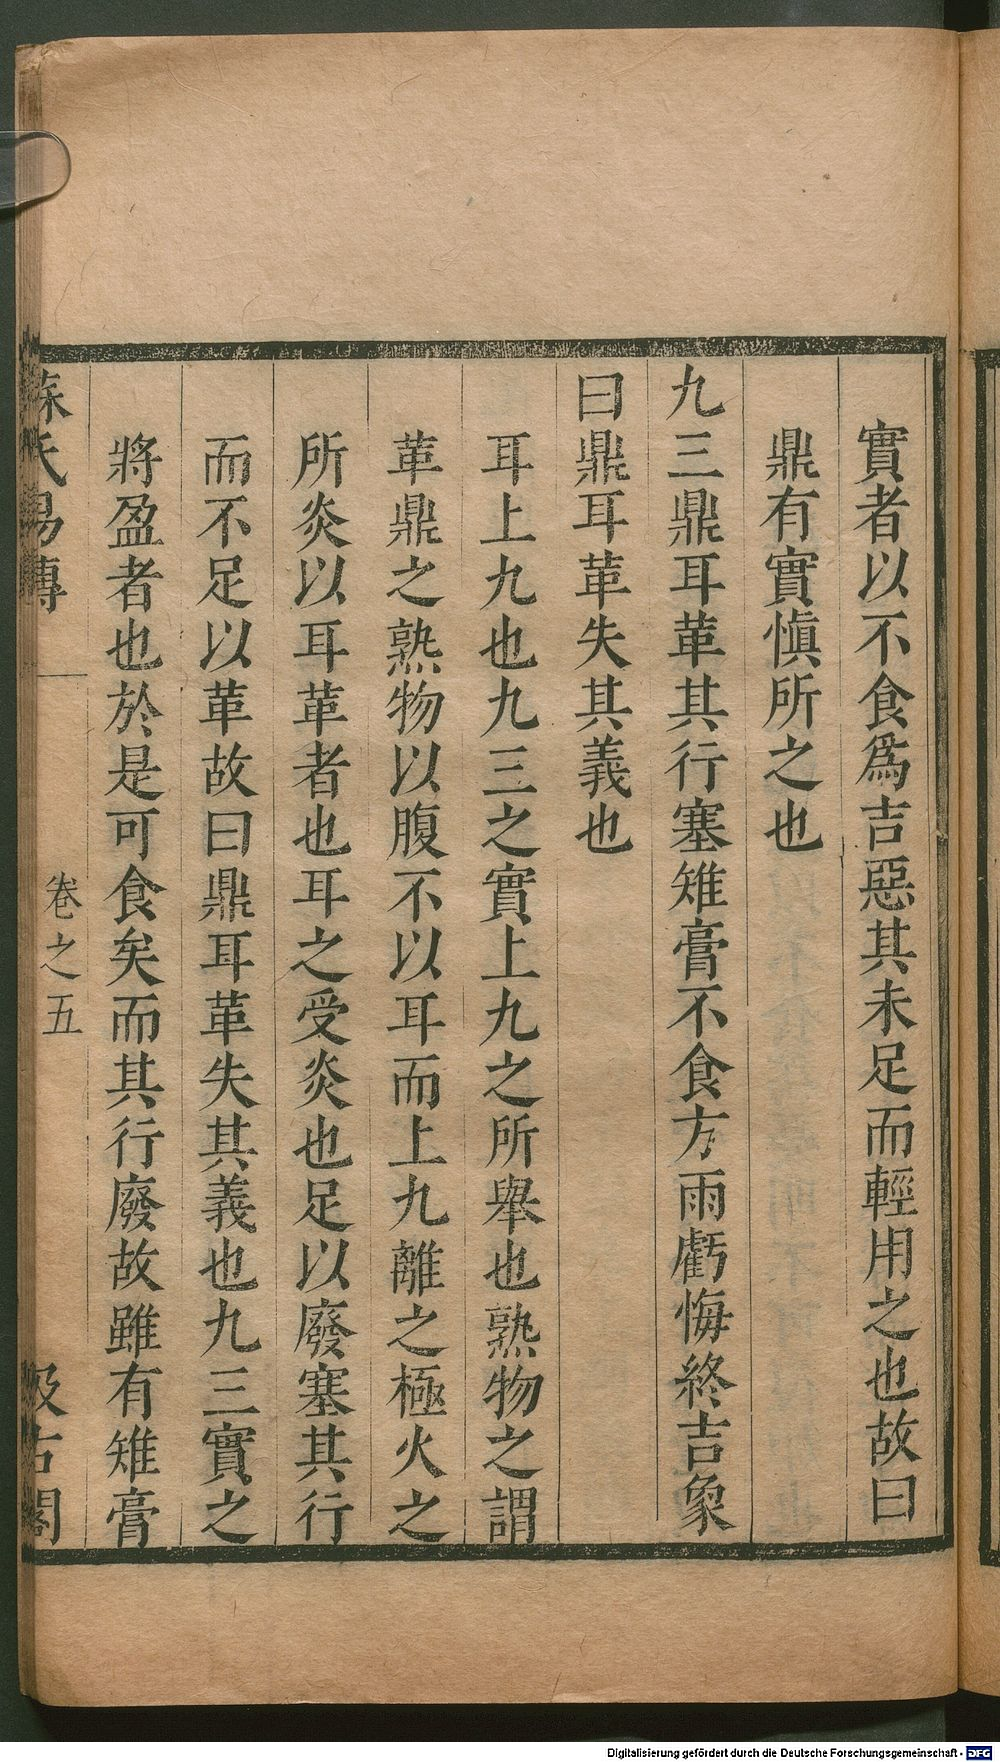 實者以不食爲吉惡其未足而輕用之也故曰
鼎有實愼所之也
九三鼎耳革其行塞雉膏不食方雨虧悔終吉象
曰鼎耳革失其義也
耳上九也九三之實上九之所舉也熟物之謂
革鼎之熟物以腹不以耳而上九離之極火之
所炎以耳革者也耳之受炎也足以廢塞其行
而不足以革故曰鼎耳革失其義也九三實之
將盈者也於是可食矣而其行廢故雖有雉膏
蘇氏易傳
卷之五
汲古閣
Digitalisierung gefördert durch die Deutsche Forschungsgemeinschaft - DFG